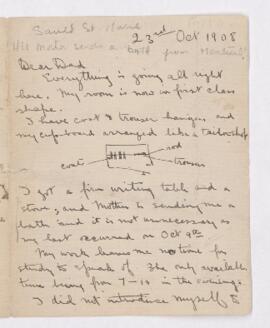 Sault St. Marie
23rd Oct 1908
His Mother sends a bath from Montreal
Dear Dad
Everything is going all right
here. My room is now in first class
shape.
I have coat & trouser hangers and
my cupboard arranged like a tailorshop
rod
coats
trousers
I got a fine writing table and a
stove, and Mother is sending me a
bath and it is not unnecessary as
my last occurred on Oct 9th
My work leaves me no time for
study to speak of. The only available
time being from 7-10 in the evenings
I did not introduce myself to